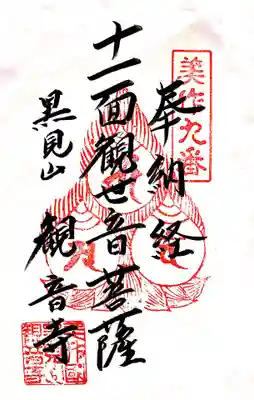 美作九番
奉納経
十一面観世音菩薩
黒見山
観音寺